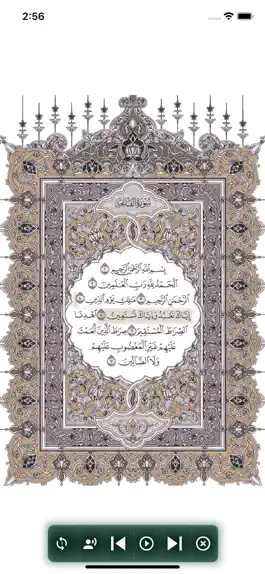 2:56
سورة الفاتحة
بِسْمِ اللَّهِ الرَّحْمَٰنِ الرَّحِيمِ ١
الْحَمْدُ لِلَّهِ رَبِّ الْعَالَمِينَ ٢
الرَّحْمَٰنِ الرَّحِيمِ ٣ مَالِكِ يَوْمِ الدِّينِ ٤
إِيَّاكَ نَعْبُدُ وَإِيَّاكَ نَسْتَعِينُ ٥ اهْدِنَا
الصِّرَاطَ الْمُسْتَقِيمَ ٦ صِرَاطَ الَّذِينَ أَنْعَمْتَ
عَلَيْهِمْ غَيْرِ الْمَغْضُوبِ عَلَيْهِمْ
وَلَا الضَّالِّينَ ٧